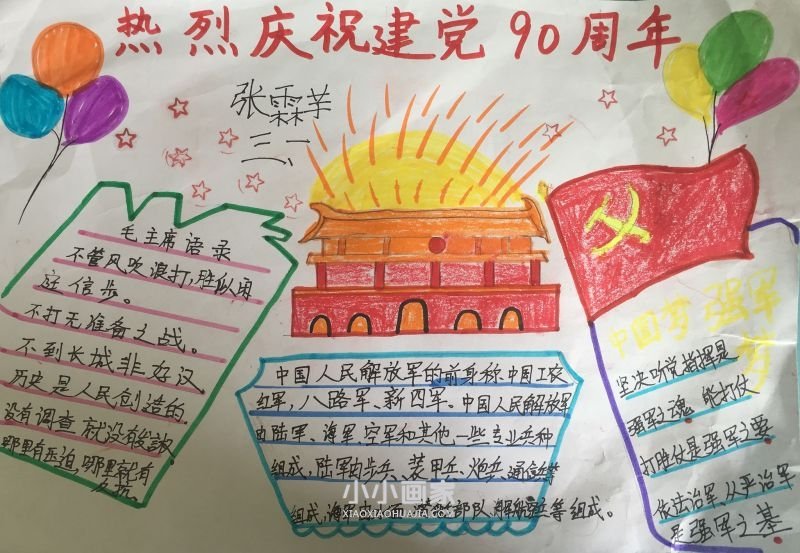 热烈庆祝建党90周年
张霖芊
三、
毛主席语录
不管风吹浪打,胜似闲
庭信步。
不打无准备之战。
不到长城非好汉
历史是人民创造的.
没有调查就没有
哪里有压迫,哪里就有
中国人民解放军的前身称中国工农
红军,八路军、新四军。中国人民解放军
由陆军、海军、空军和其他一些专业兵种
组成、陆军由步兵、装甲兵、炮兵、通信兵等
组成,海军由 部队、 等组成。
小小画家
XIAOXIAOHUAJIA.COM
中国梦 强军
梦
坚决听党指挥是
强军之魂 能打仗
打胜仗是强军之要
依法治军、从严治军
是强军之基